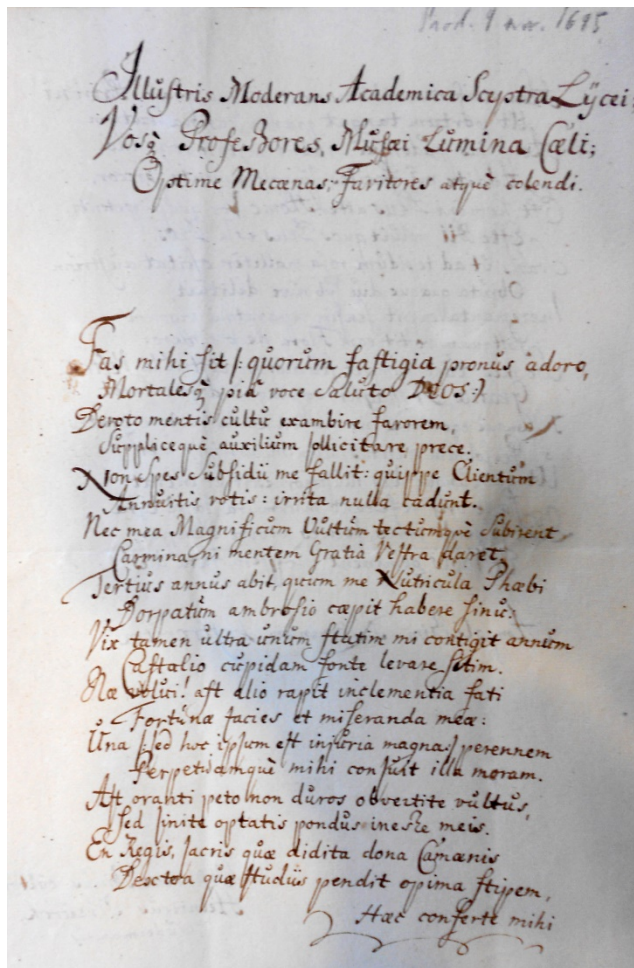 Prod. 9 nov. 1695
Illustris Moderans Academica Sceptra Lÿcei,
Vosq́ Professores, Musæi Lumina Cœli;
Optime Mecœnas, Favitores atquè colendi.
Fas mihi sit /: quorum fastigia pronus adoro,
Mortalesq́ piâ voce saluto DEOS :/
Devoto mentis cultu exambire favorem,
Supplicequè auxilium sollicitare prece.
Non Spes Subsidii me fallit: quippe Clientum
Annuitis votis: irrita nulla cadunt.
Nec mea Magnificum Vultum tectumquè subirent
Carmina, ni mentem Gratia Vestra daret.
Tertius annus abit, quum me Nutricula Phœbi
Dorpatum ambrosio cœpit habere sinu:
Vix tamen ultra unum statim mi contigit annum
Castalio cupidam fonte levare sitim.
Næ volui! ast alio rapit inclementia fati
Fortunæ facies et miseranda meæ:
Una /sed hoc ipsum est injuria magna/ perennem
Perpetuamquè mihi consuit illa moram.
Ast oranti peto non duros obvertite vultus,
Sed sinite optatis pondus inesse meis.
En Regis, sacris quæ didita dona Camœnis
Devota quæ studiis pendit opima stipem,
Hæc conferte mihi